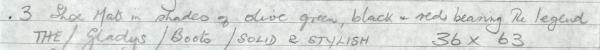 . 3 Shoe Mats in shades of olive green, black & red bearing the legend
THE / Gladys / Boots / SOLID & STYLISH 36 x 63